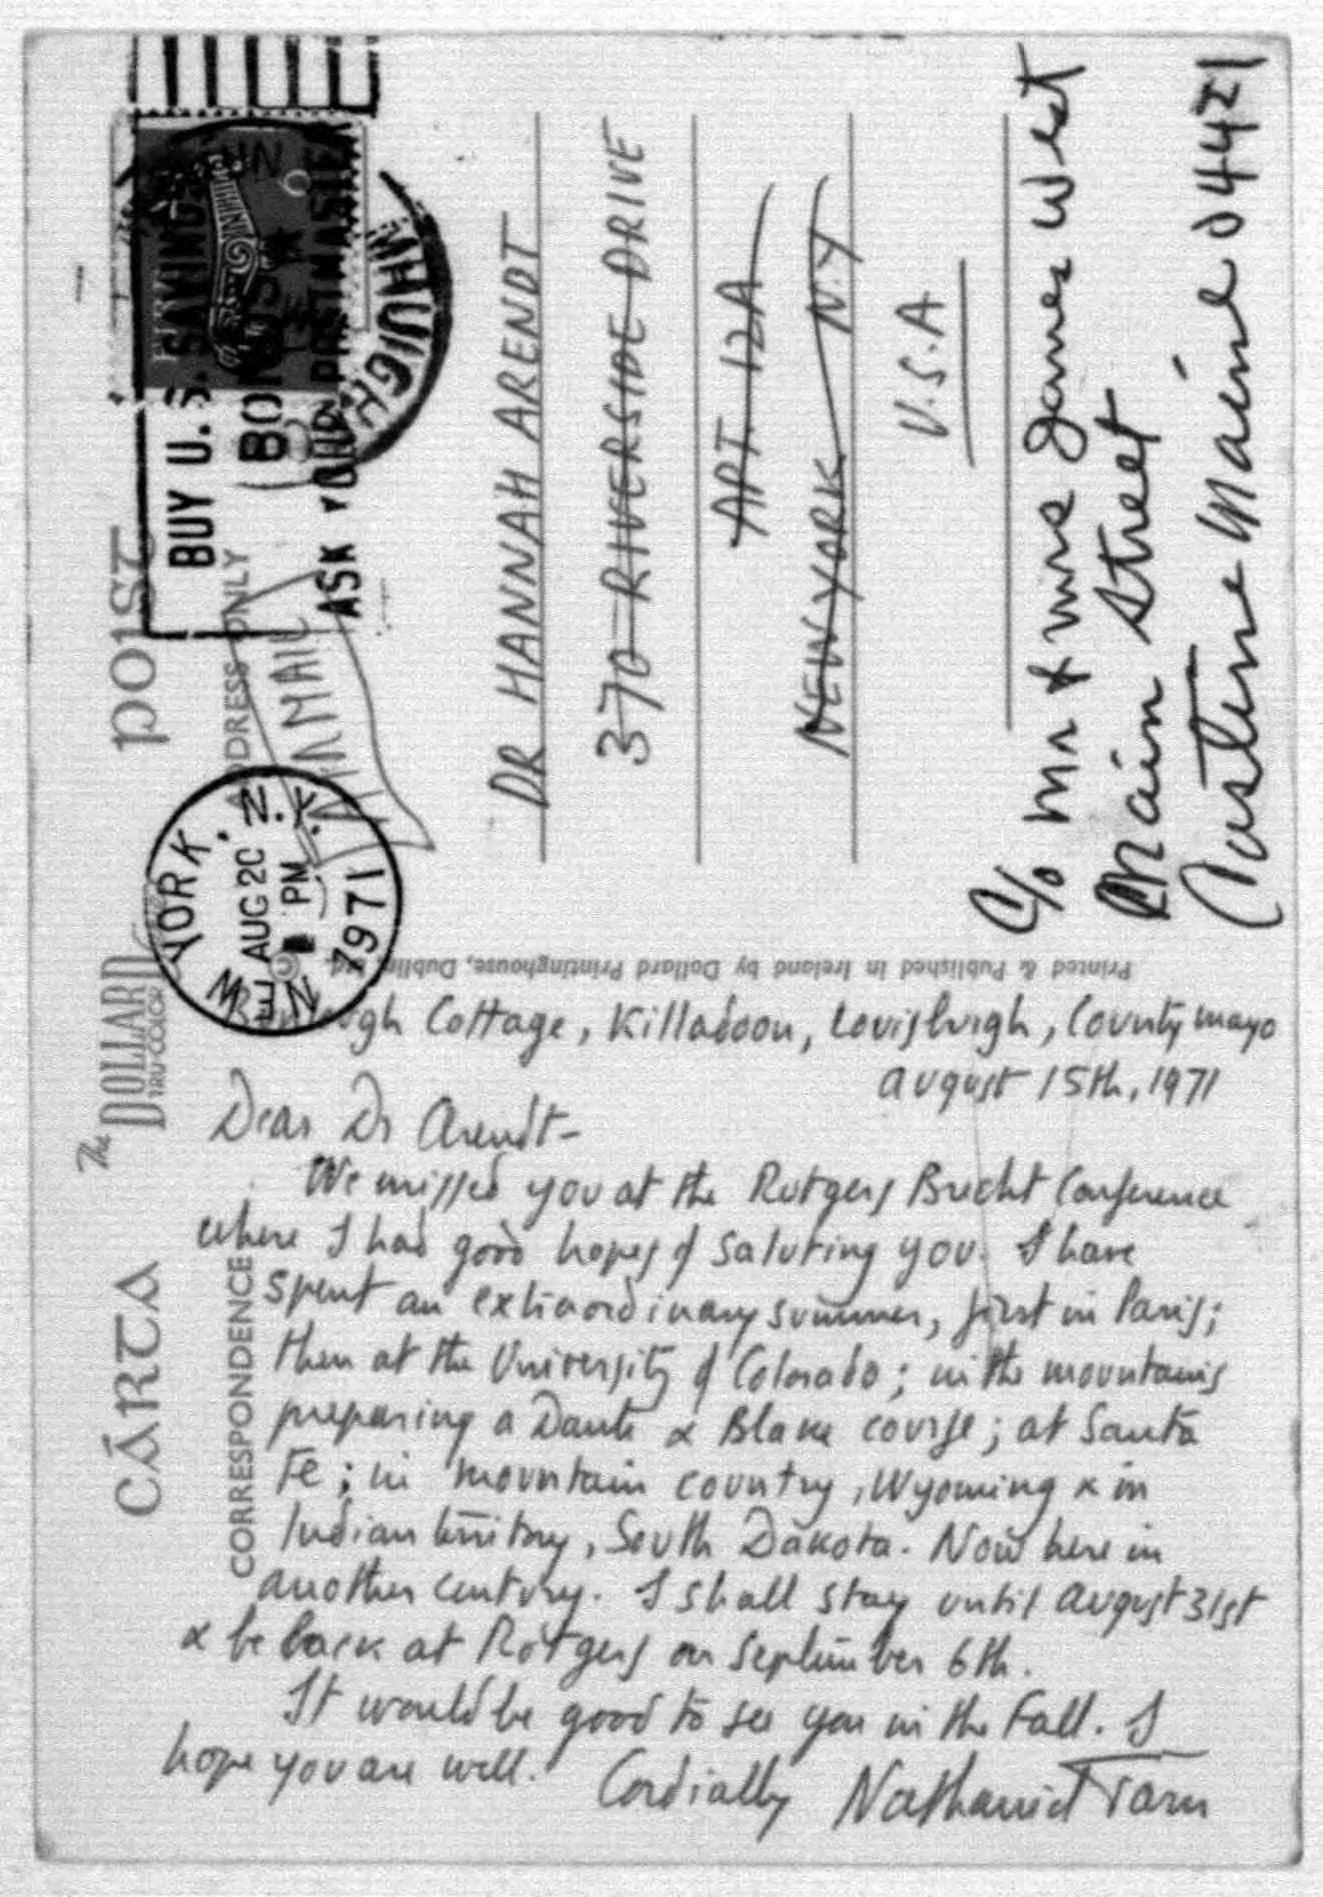 CÁRTA
POIST
The DOLLARD
TRU-COLOR
CORRESPONDENCE
ADDRESS ONLY
BUY U.S. SAVINGS
BONDS
ASK YOUR POSTMASTER
NEW YORK, N.Y.
AUG 20
PM
1971
AIRMAIL
DR HANNAH ARENDT
370 RIVERSIDE DRIVE
APT 12A
NEW YORK N.Y
U.S.A
c/o Mr & Mrs James West
Main Street
Castine Maine 04421
Printed & Published in Ireland by Dollard Printinghouse, Dublin, Ltd
Cottage, Killadoon, Louisburgh, County Mayo
August 15th, 1971
Dear Dr Arendt-
We missed you at the Rutgers Brecht Conference
where I had good hopes of saluting you. I have
spent an extraordinary summer, first in Paris;
then at the University of Colorado; in the mountains
preparing a Dante & Blake course; at Santa
Fe; in mountain country, Wyoming & in
Indian territory, South Dakota. Now here in
another century. I shall stay until August 31st
& be back at Rutgers on September 6th.
It would be good to see you in the Fall. I
hope you are well. Cordially Nathaniel Tarn